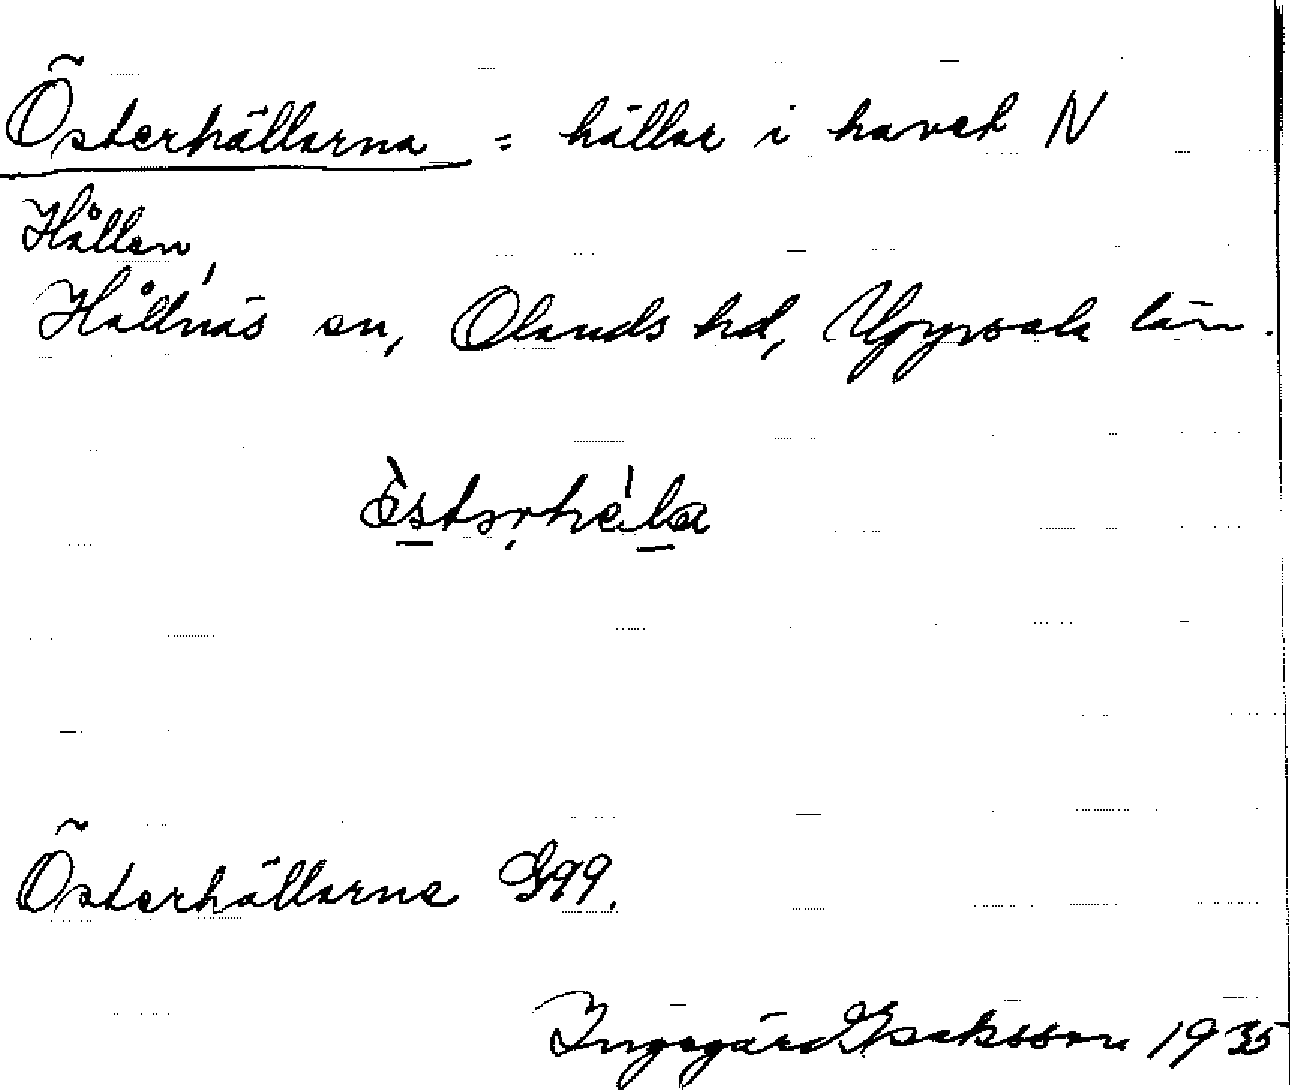 Österhällarna = hällar i havet N
Hållen,
Hållnäs sn, Olands hd, Uppsala län.
Österhällarne
Ingegärd Isaksson 1935